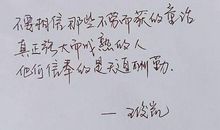 不要相信那些不劳而获的童话
真正强大而成熟的人
他们信奉的是天道酬勤。
—王俊凯